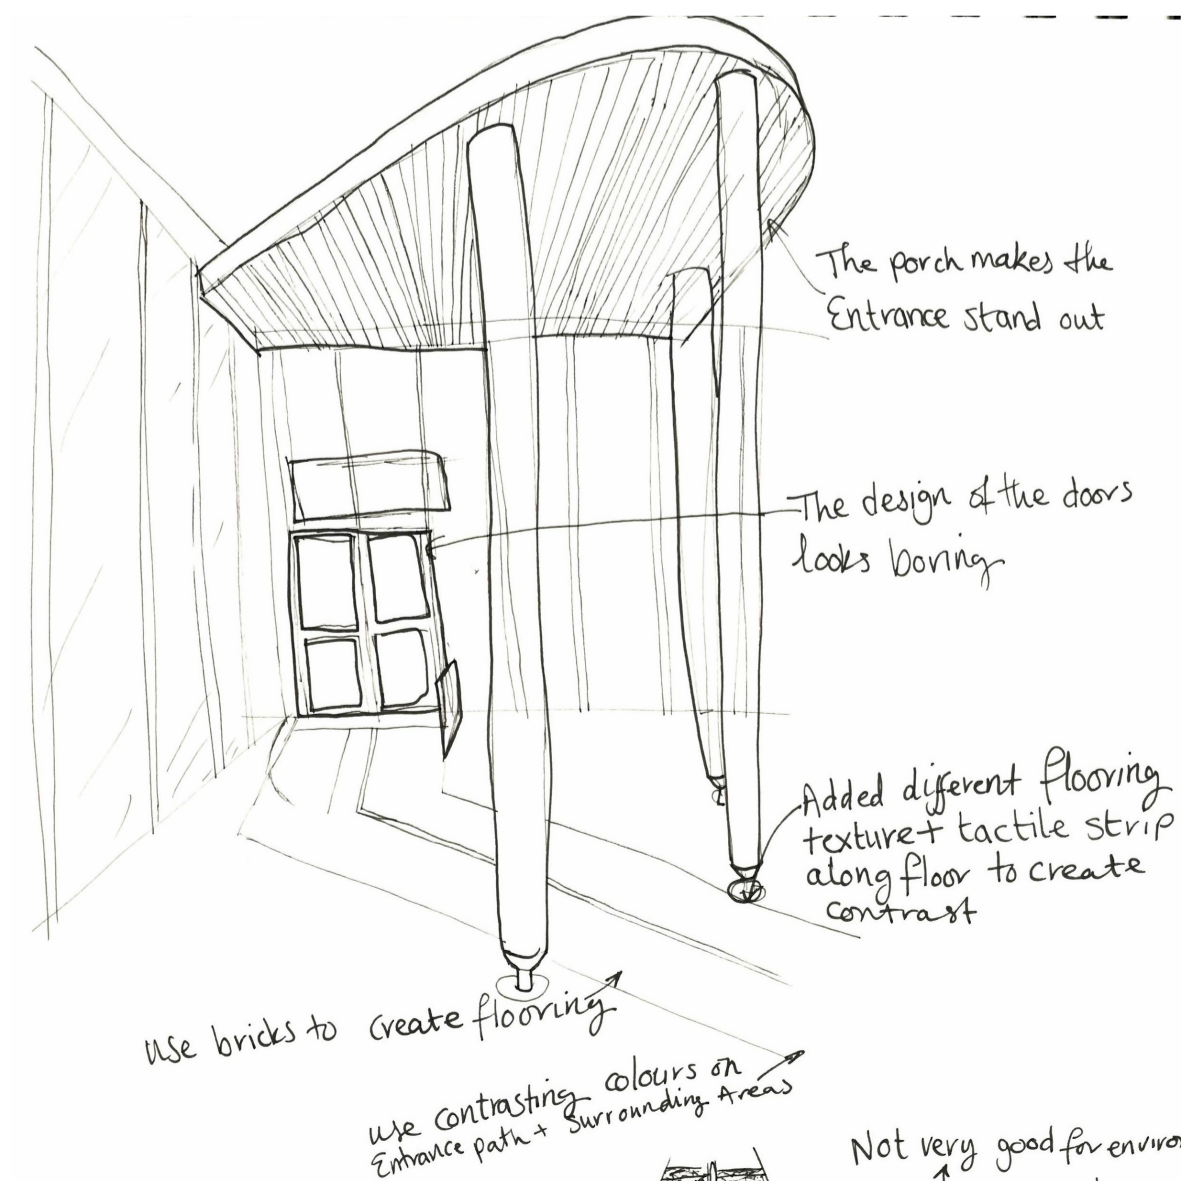 The porch makes the
Entrance stand out
The design of the doors
looks boring
Added different flooring
texture + tactile strip
along floor to create
contrast
use bricks to create flooring
use contrasting colours on
Entrance path + Surrounding Areas
Not very good for enviro